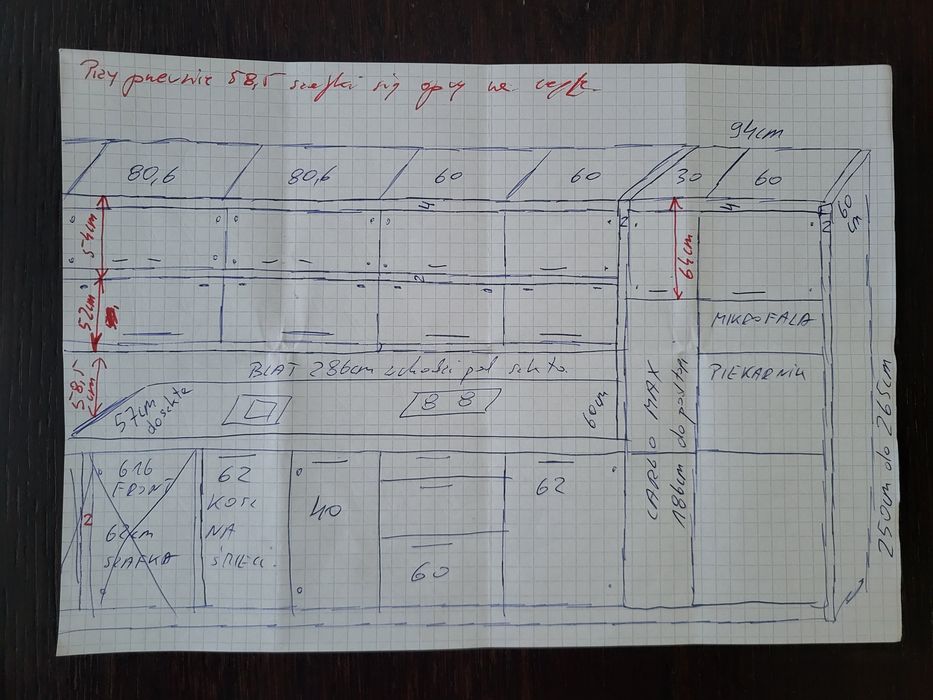 Przy pnewnie 58,5 szafki się opry na
94cm
80,6
80,6
60
60
30
60
60 cm
4
4
2
2
54cm
64cm
2
52cm
MIKROFALA
58,5 cm
BLAT 286cm
PIEKARNIK
57cm
do
8 8
60cm
CARGO MAX
186cm do
250cm do 265cm
616
FRONT
62cm
SZAFKA
2
62
KOSZ
NA
ŚMIECI
40
60
62